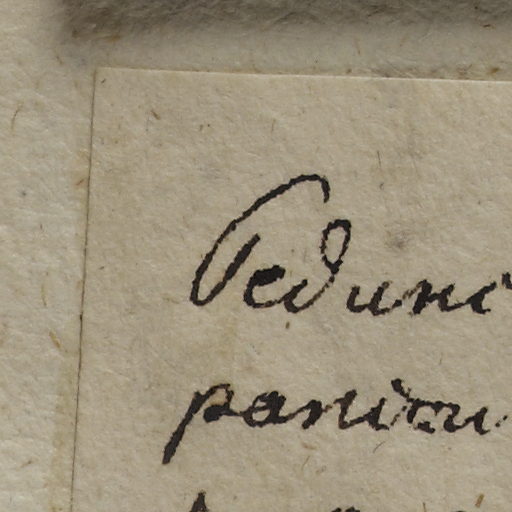 Pedunc
panicu